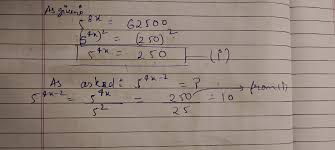 As given:
5^{8x} = 62500
(5^{4x})^2 = (250)^2
5^{4x} = 250 — (i)
As asked: 5^{4x-2} = ?
5^{4x-2} = \frac{5^{4x}}{5^2} = \frac{250}{25} = 10 → from (i)